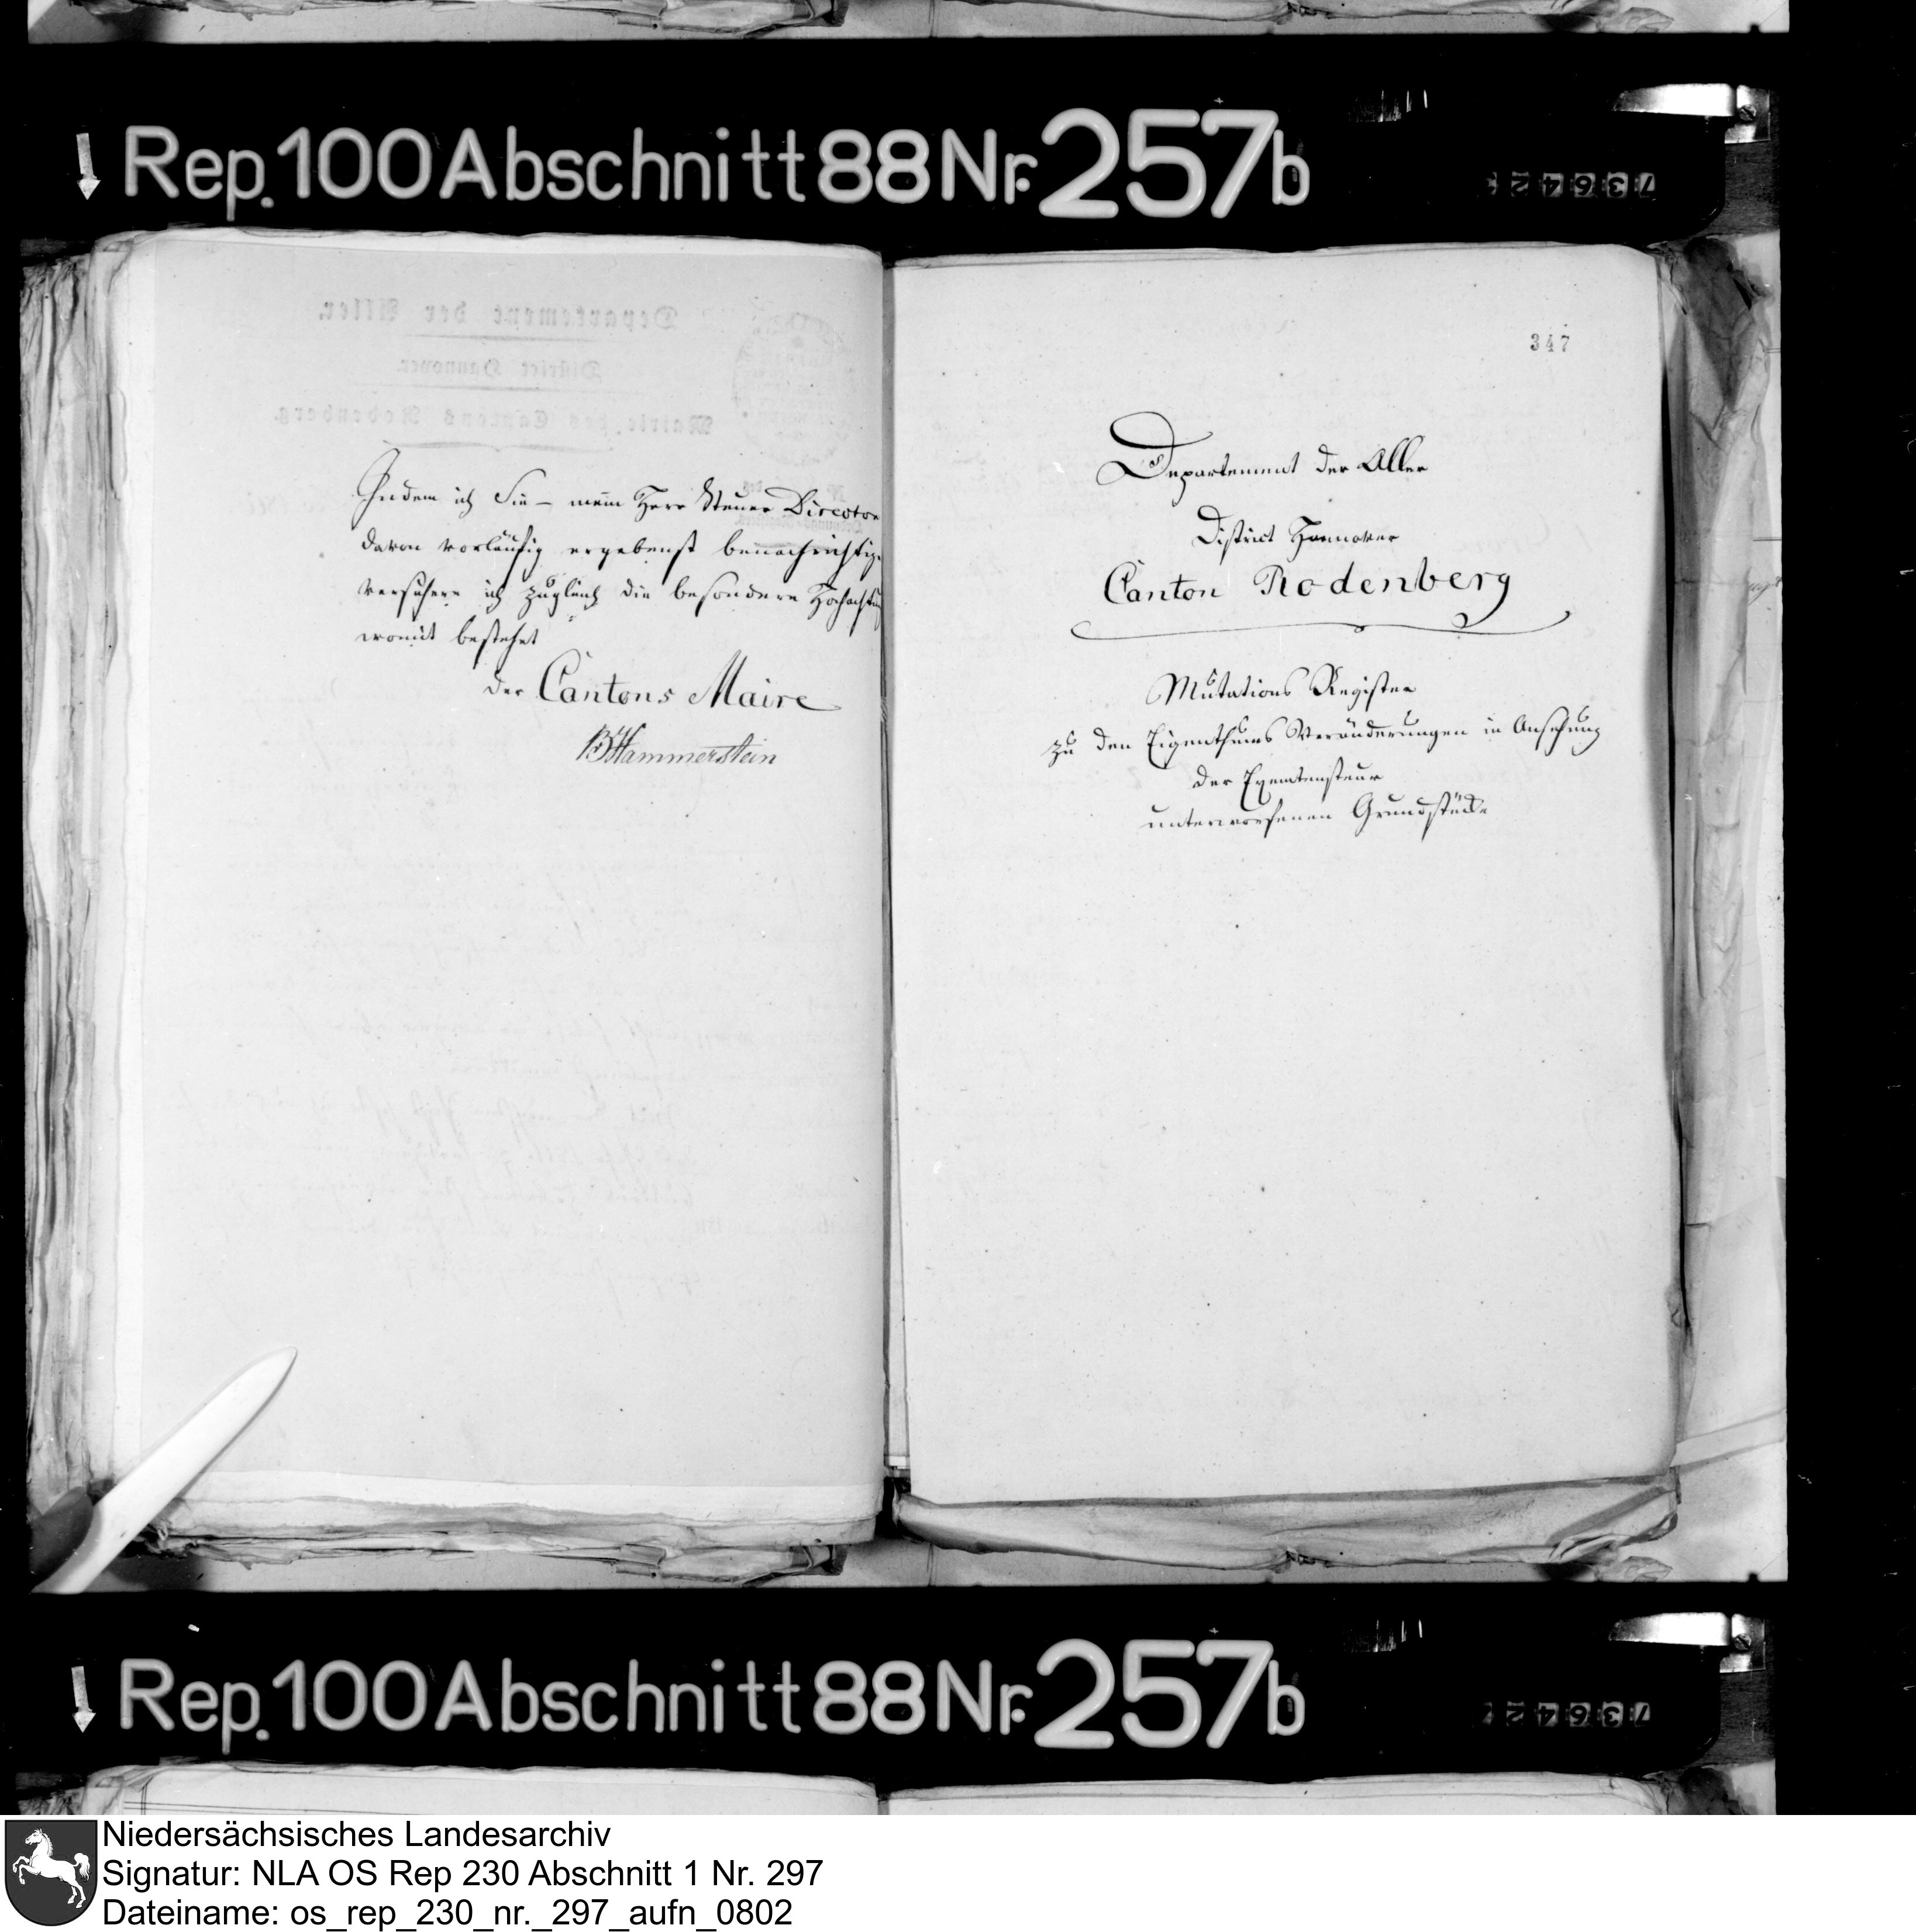 Rep. 100 Abschnitt 88 Nr. 257b
73642
Departement der Aller.
District Hannover.
Mairie des Cantons Rodenberg.
Indem ich Sie – mein Herr Steuer Director
davon vorläufig ergebenst benachrichtige
versichere ich zugleich die besondere Hochachtung
womit bestehet
der Cantons Maire
Hammerstein
347
Departement der Aller
District Hannover
Canton Rodenberg
Mutations Register
zu den Eigenthums Veränderungen in Ansehung
der Exemtensteuer
unterworfenen Grundstücke
Rep. 100 Abschnitt 88 Nr. 257b
73642
Niedersächsisches Landesarchiv
Signatur: NLA OS Rep 230 Abschnitt 1 Nr. 297
Dateiname: os_rep_230_nr._297_aufn_0802